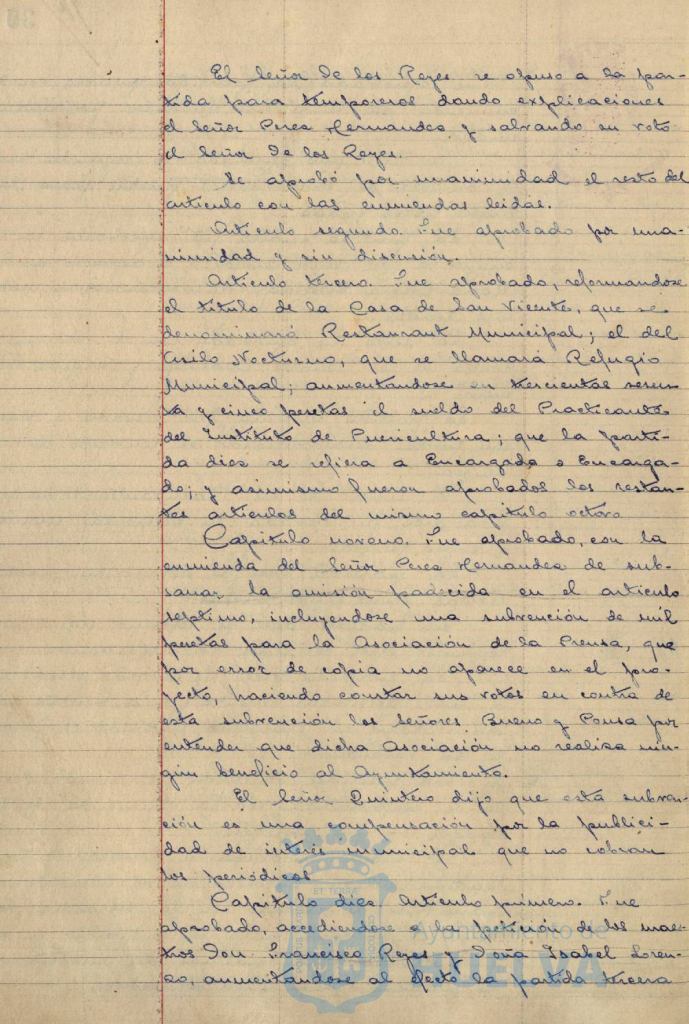 El Señor De los Reyes se opuso a la par-
tida para temporeros dando explicaciones
el Señor Perea Hernandez y salvando su voto
el Señor De los Reyes.
Se aprobó por unanimidad el resto del
articulo con las enmiendas leidas.
Articulo segundo. Fue aprobado por una-
nimidad y sin discusión.
Articulo tercero. Fue aprobado, reformandose
el titulo de la Casa de San Vicente, que se
denominará Restaurant Municipal; el del
Asilo Nocturno, que se llamará Refugio
Municipal; aumentandose en trescientas sesen-
ta y cinco pesetas el sueldo del Practicante
del Instituto de Puericultura; que la parti-
da diez se refiera a Encargada o Encarga-
do; y asimismo fueron aprobados los restan-
tes articulos del mismo capitulo octavo
Capitulo noveno. Fue aprobado, con la
enmienda del Señor Perea Hernandez de sub-
sanar la omisión padecida en el articulo
septimo, incluyendose una subvención de mil
pesetas para la Asociación de la Prensa, que
por error de copia no aparece en el pro-
yecto, haciendo constar sus votos en contra de
esta subvención los Señores Bueno y Ponsa por
entender que dicha Asociación no realiza nin-
gún beneficio al Ayuntamiento.
El Señor Quintero dijo que esta subven-
ción es una compensación por la publici-
dad de interés municipal que no cobran
los periódicos
Capitulo diez Articulo primero. Fue
aprobado, accediendose a la petición de los maes-
tros Don Francisco Reyes y Doña Isabel Loren-
zo, aumentandose al efecto la partida tercera
Ayuntamiento de
HUELVA